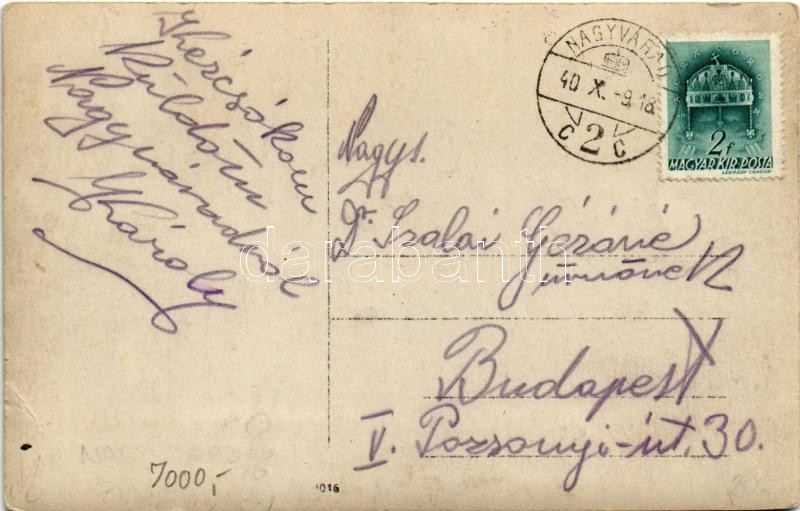 Kézcsókom
Küldöm
Nagyváradról
Károly
NAGYVÁRAD
40 X. -9.18
C 2 C
2f
MAGYAR KIR. POSTA
LÉGRÁDY SÁNDOR
Nagys.
Dr. Szalai Gézáné
úrnőnek
Budapest
V. Pozsonyi-út. 30.
7000,-
016
darabanth